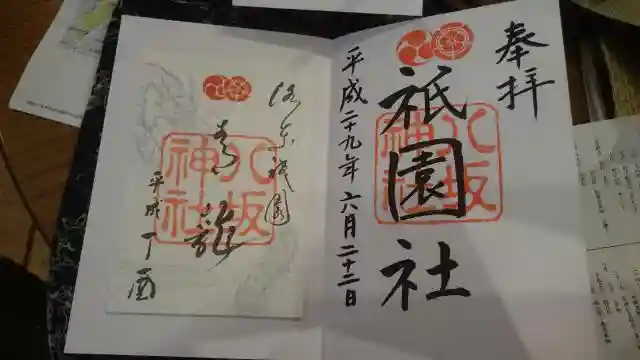 奉拝
祇園社
八坂神社
平成二十九年六月二十二日
洛東祇園
青龍
八坂神社
平成丁酉